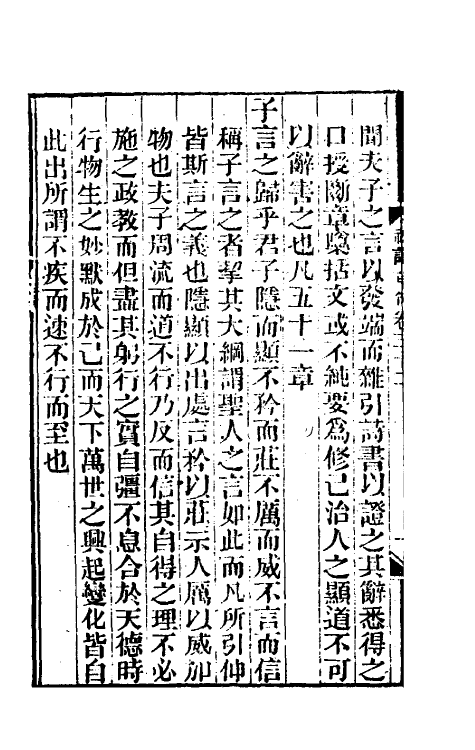 聞夫子之言以發端而雜引詩書以證之其辭悉得之
口授斷章檃括文或不純要爲修己治人之顯道不可
以辭害之也凡五十一章
子言之歸乎君子隱而顯不矜而莊不厲而威不言而信
稱子言之者挈其大綱謂聖人之言如此而凡所引伸
皆斯言之義也隱顯以出處言矜以莊示人厲以威加
物也夫子周流而道不行乃反而信其自得之理不必
施之政教而但盡其躬行之實自彊不息合於天德時
行物生之妙默成於己而天下萬世之興起變化皆自
此出所謂不疾而速不行而至也